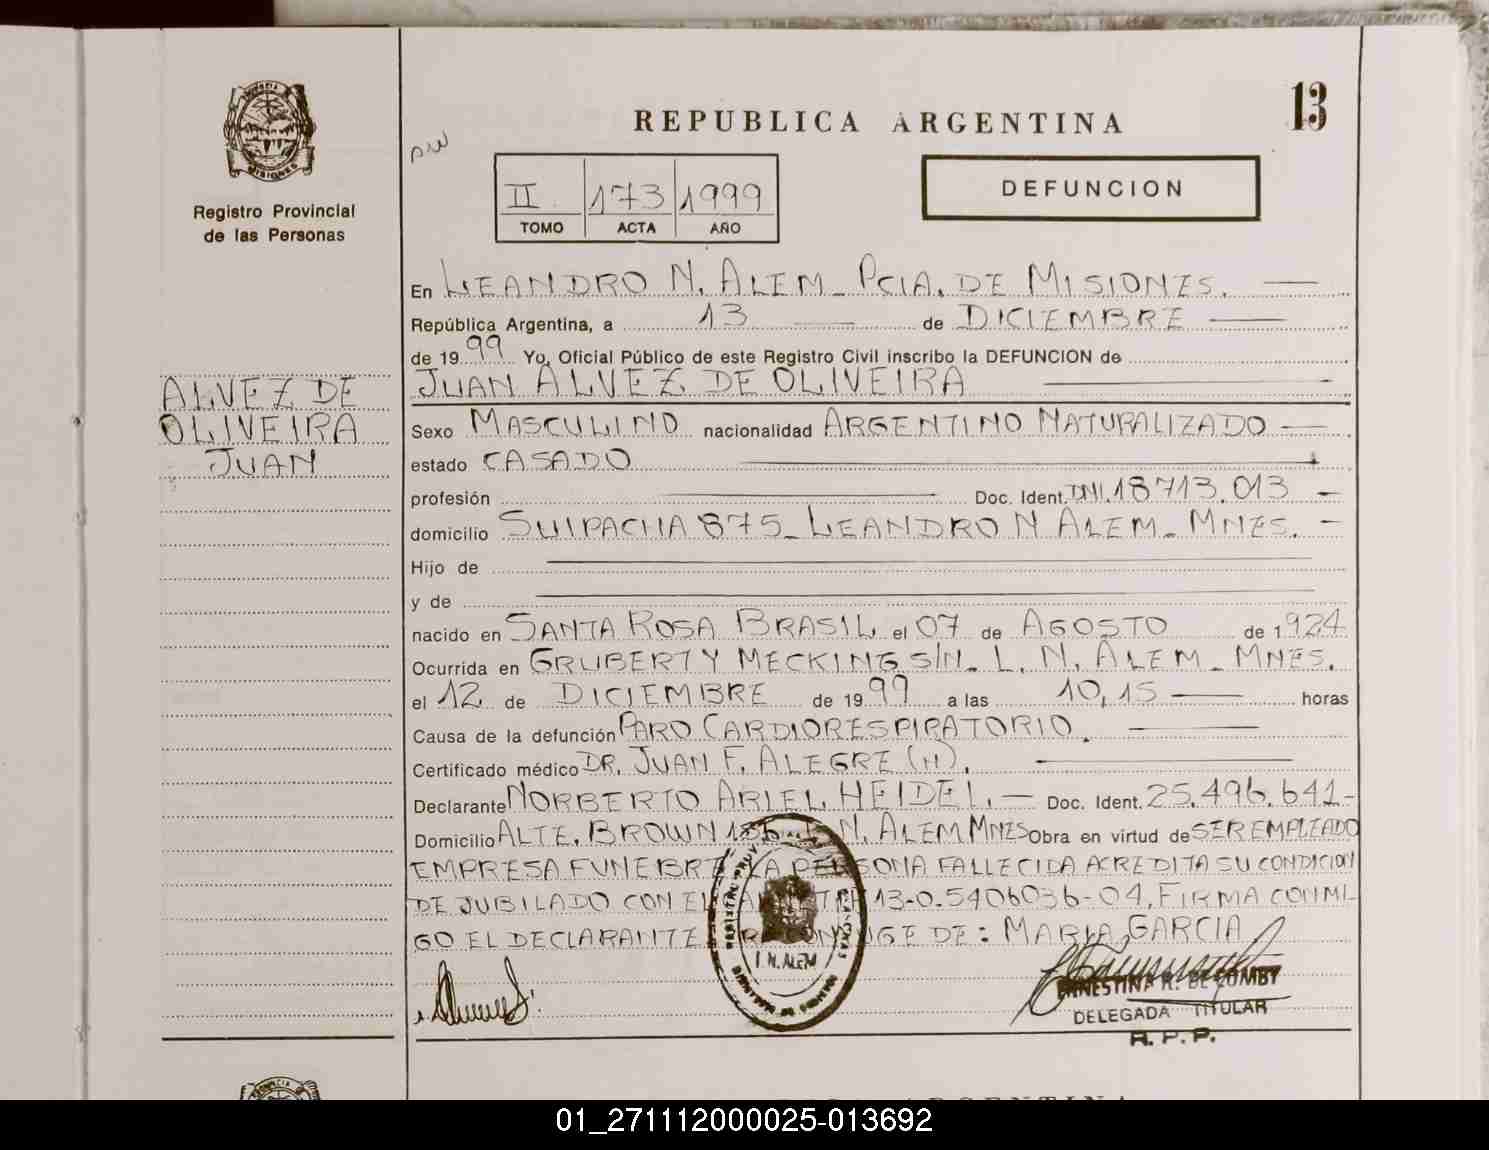 REPUBLICA ARGENTINA
13
PROVINCIA
MISIONES
Registro Provincial
de las Personas
II 173 1999
TOMO ACTA AÑO
DEFUNCION
En LEANDRO N. ALEM - PCIA. DE MISIONES.
República Argentina, a 13 de DICIEMBRE
de 1999 Yo, Oficial Público de este Registro Civil inscribo la DEFUNCION de
JUAN ALVEZ DE OLIVEIRA
ALVEZ DE
OLIVEIRA
JUAN
Sexo MASCULINO nacionalidad ARGENTINO NATURALIZADO
estado CASADO
profesión Doc. Ident. DNI. 18713.013
domicilio SUIPACHA 875 - LEANDRO N ALEM - MNES.
Hijo de
y de
nacido en SANTA ROSA BRASIL el 07 de AGOSTO de 1924
Ocurrida en GRUBERT Y MECKING S/N. L. N. ALEM - MNES.
el 12 de DICIEMBRE de 1999 a las 10,15 horas
Causa de la defunción PARO CARDIORESPIRATORIO.
Certificado médico DR. JUAN F. ALEGRE (H).
Declarante NORBERTO ARIEL HEIDEL. Doc. Ident. 25.496.641-
Domicilio ALTE. BROWN N. ALEM MNES Obra en virtud de SER EMPLEADO
EMPRESA FUNEBRE LA PERSONA FALLECIDA ACREDITA SU CONDICION
DE JUBILADO CON EL 13-0.5406036-04. FIRMA CONMI-
GO EL DECLARANTE DE: MARIA GARCIA
L. N. ALEM
ERNESTINA R. DE COMBY
DELEGADA TITULAR
R. P. P.
REPUBLICA ARGENTINA
01_271112000025-013692